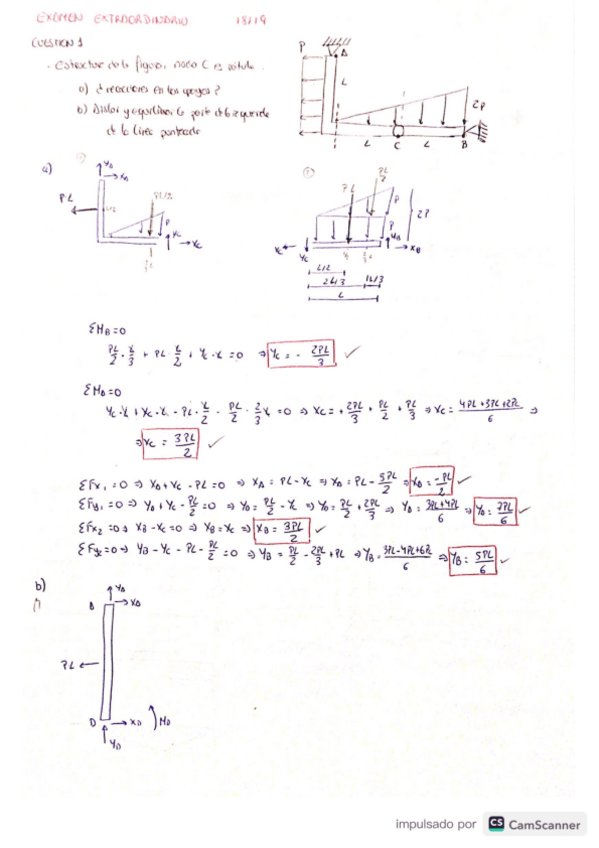 EXAMEN EXTRAORDINARIO 18/19
CUESTION 1
· Estructura de la figura, nodo C es rótula.
a) ¿reacciones en los apoyos?
b) Aislar y equilibrar la parte de la izquierda
de la línea punteada
P
A
L
2P
L C L B
a)
①
YA
XA
PL
L/2
PL/2
P
YC
XC
②
PL
PL/2
P
P
2P
XC
YC
YB
XB
L/2
2L/3 L/3
L
ΣMB=0
PL/2 · L/3 + PL · L/2 + YC · L = 0 ⇒ YC = - 2PL/3 ✓
ΣMA=0
YC · L + XC · L - PL · L/2 - PL/2 · 2/3 L = 0 ⇒ XC = + 2PL/3 + PL/2 + PL/3 ⇒ XC = 4PL+3PL+2PL/6 ⇒
⇒ XC = 3PL/2 ✓
ΣFx1 = 0 ⇒ XA + XC - PL = 0 ⇒ XA = PL - XC ⇒ XA = PL - 3PL/2 ⇒ XA = -PL/2 ✓
ΣFy1 = 0 ⇒ YA + YC - PL/2 = 0 ⇒ YA = PL/2 - YC ⇒ YA = PL/2 + 2PL/3 ⇒ YA = 3PL+4PL/6 ⇒ YA = 7PL/6 ✓
ΣFx2 = 0 ⇒ XB - XC = 0 ⇒ XB = XC ⇒ XB = 3PL/2 ✓
ΣFy2 = 0 ⇒ YB - YC - PL - PL/2 = 0 ⇒ YB = PL/2 - 2PL/3 + PL ⇒ YB = 3PL-4PL+6PL/6 ⇒ YB = 5PL/6 ✓
b)
YA
XA
PL
D XD MD
YD
impulsado por CS CamScanner